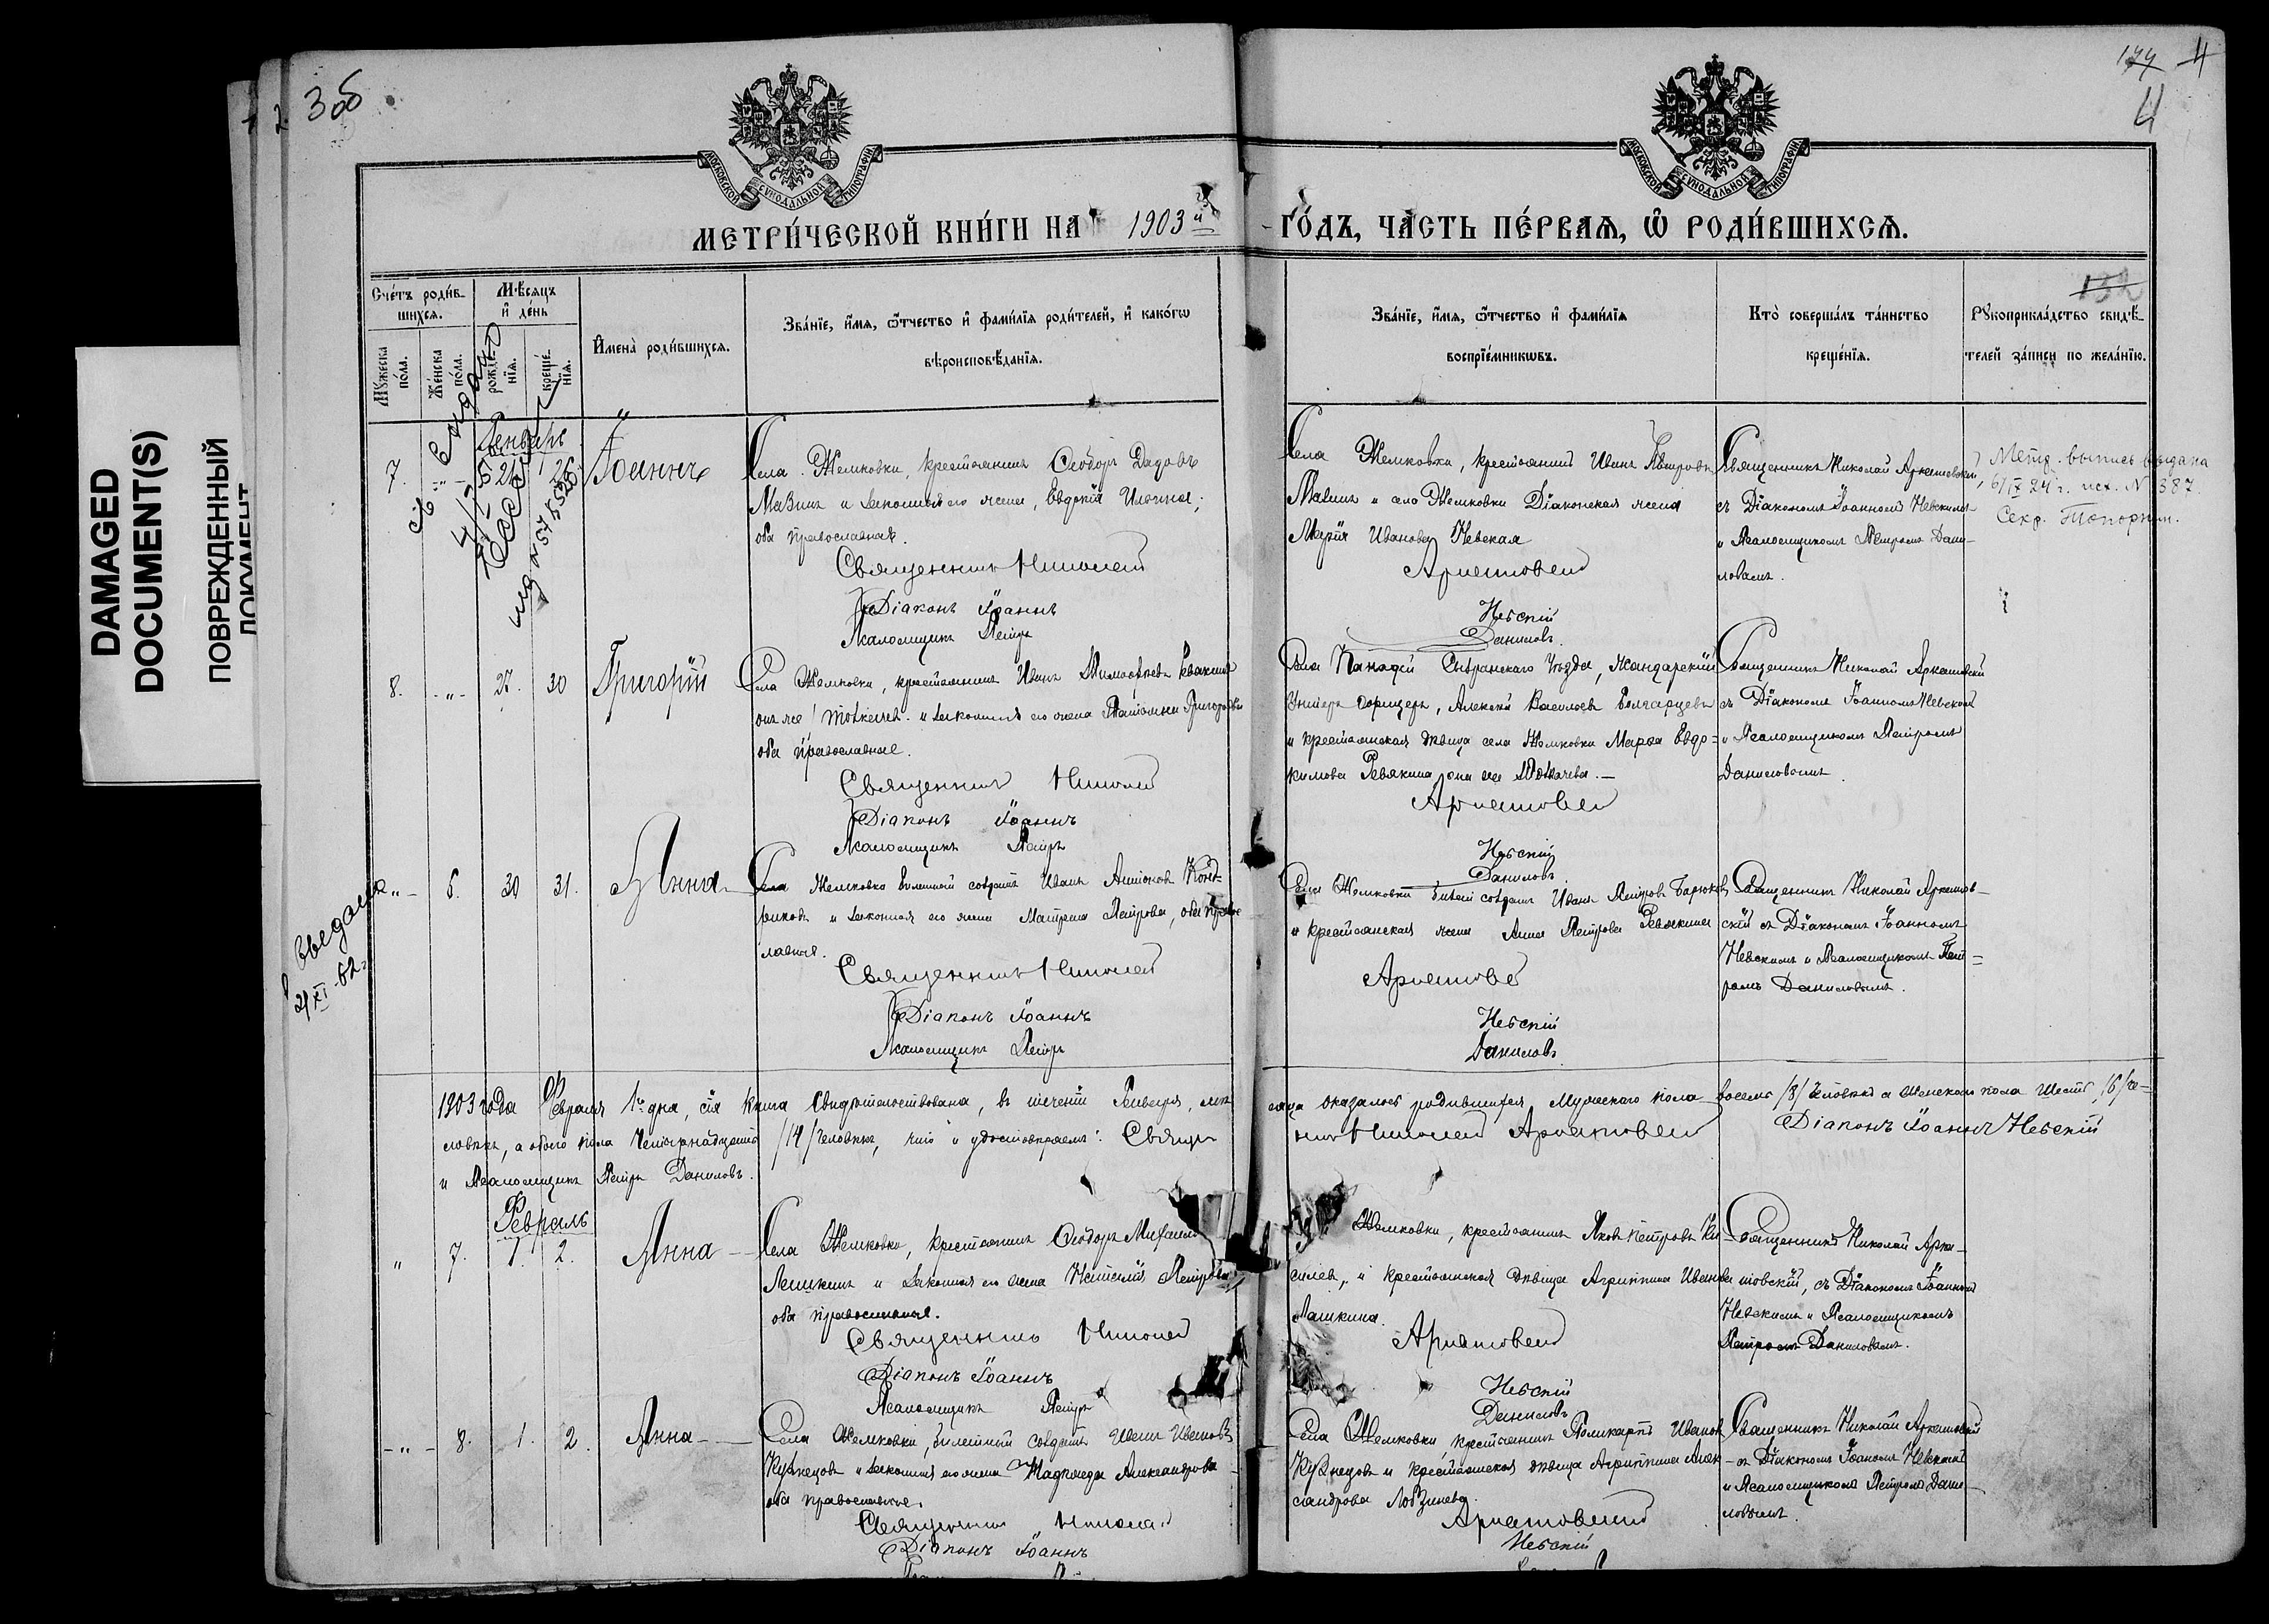 DAMAGED
DOCUMENT(S)
ПОВРЕЖДЕННЫЙ
ДОКУМЕНТ
3об
174 4
4
132
МОСКОВСКОЙ СУНОДАЛЬНОЙ ТИПОГРАФІИ
МОСКОВСКОЙ СУНОДАЛЬНОЙ ТИПОГРАФІИ
МЕТРИ́ЧЕСКОЙ КНИ́ГИ НА 1903 й ГО́ДЪ, ЧА́СТЬ ПЕ́РВАЯ, Ѡ РОДИ́ВШИХСЯ.
Сче́тъ роди́в-
шихся.
Мꙋжеска по́ла.
Же́нска по́ла.
Мѣ́сяцъ
и҆ де́нь
рожде́нїя.
креще́нїя.
И҆мена̀ роди́вшихся.
Зва́нїе, и҆́мя, ѻ҆́тчество и҆ фами́лїя роди́телей, и҆ како́гѡ
вѣроисповѣ́данїя.
Зва́нїе, и҆́мя, ѻ҆́тчество и҆ фами́лїя
воспрїе́мникѡвъ.
Кто̀ соверша́лъ та́инство
креще́нїя.
Рꙋкоприкла́дство свидѣ́-
телей за́писи по жела́нїю.
Январь
7. -"- 26 Іоаннъ
Села Жемковки, крестьянинъ Ѳеодоръ
Мазинъ и законная его жена, Евдокія Ильина;
оба православные.
Священникъ Николай
Діаконъ Іоаннъ
Псаломщикъ Петръ
Села Жемковки, крестьянинъ Иванъ Петровъ
Мазинъ и села Жемковки Діаконская жена
Марія Иванова Невская
Аркатовскій
Невскій
Даниловъ.
Священникъ Николай Аркатовскій,
съ Діакономъ Іоанномъ Невскимъ
и Псаломщикомъ Петромъ Дани-
ловымъ.
Метр. выпись выдана
6/IX 24 г. исх. N 387.
Секр.
8. -"- 27. 30 Григорій
Села Жемковки, крестьянинъ Иванъ Ревякинъ
онъ же и законная его жена Григорьева
оба православные.
Священникъ Николай
Діаконъ Іоаннъ
Псаломщикъ Петръ
Села Канадей Сызранскаго Уѣзда, Жандармскій
Унтеръ офицеръ, Алексѣй Васильевъ Болгарцевъ
и крестьянская дѣвица села Жемковки Марѳа Евдо-
кимова Ревякина, она же
Аркатовскій
Невскій
Даниловъ
Священникъ Николай Аркатовскій
съ Діакономъ Іоанномъ Невскимъ
и Псаломщикомъ Петромъ
Даниловымъ.
21/XI-62.
-"- 6. 30 31. Анна
Села Жемковки билетный солдатъ Иванъ Конд-
и законная его жена Матрона Петрова, оба право-
славные.
Священникъ Николай
Діаконъ Іоаннъ
Псаломщикъ Петръ
Села Жемковки солдатъ Иванъ Петровъ
и крестьянская жена Анна Петрова Ревякина
Аркатовскій
Невскій
Даниловъ
Священникъ Николай Аркатов-
скій съ Діакономъ Іоанномъ
Невскимъ и Псаломщикомъ Пет-
ромъ Даниловымъ.
1903 года Февраля 1го дня, сія книга свидѣтельствована, въ теченіи Января, мѣ-
сяца оказалось родившихся Мужескаго пола восемь /8/ человѣкъ а Женскаго пола Шесть /6/ че-
ловѣкъ, а обоего пола Четырнадцать /14/ человѣкъ, что и удостовѣряемъ: Священ-
никъ Николай Аркатовскій Діаконъ Іоаннъ Невскій
и Псаломщикъ Петръ Даниловъ.
Февраль
" 7. 1. 2. Анна
Села Жемковки, крестьянинъ Ѳеодоръ
Лашкинъ и законная его жена Наталія Петрова
оба православные.
Священникъ Николай
Діаконъ Іоаннъ
Псаломщикъ Петръ
Жемковки, крестьянинъ Яковъ Петровъ Ки-
селев, и крестьянская дѣвица Агриппина Иванова
Лашкина.
Аркатовскій
Невскій
Даниловъ
Священникъ Николай Арка-
товскій, съ Діакономъ Іоанномъ
Невскимъ и Псаломщикомъ
Петромъ Даниловымъ.
-"- 8. 1. 2. Анна
Села Жемковки, билетный солдатъ Иванъ Ивановъ
Кузнецовъ и законная его жена Надежда Александрова
оба православные.
Священникъ Николай
Діаконъ Іоаннъ
Села Жемковки крестьянинъ Поликарпъ Ивановъ
Кузнецовъ и крестьянская дѣвица Агриппина Алек-
сандрова
Аркатовскій
Невскій
Священникъ Николай Аркатовскій
съ Діакономъ Іоанномъ Невскимъ
и Псаломщикомъ Петромъ Дани-
ловымъ.